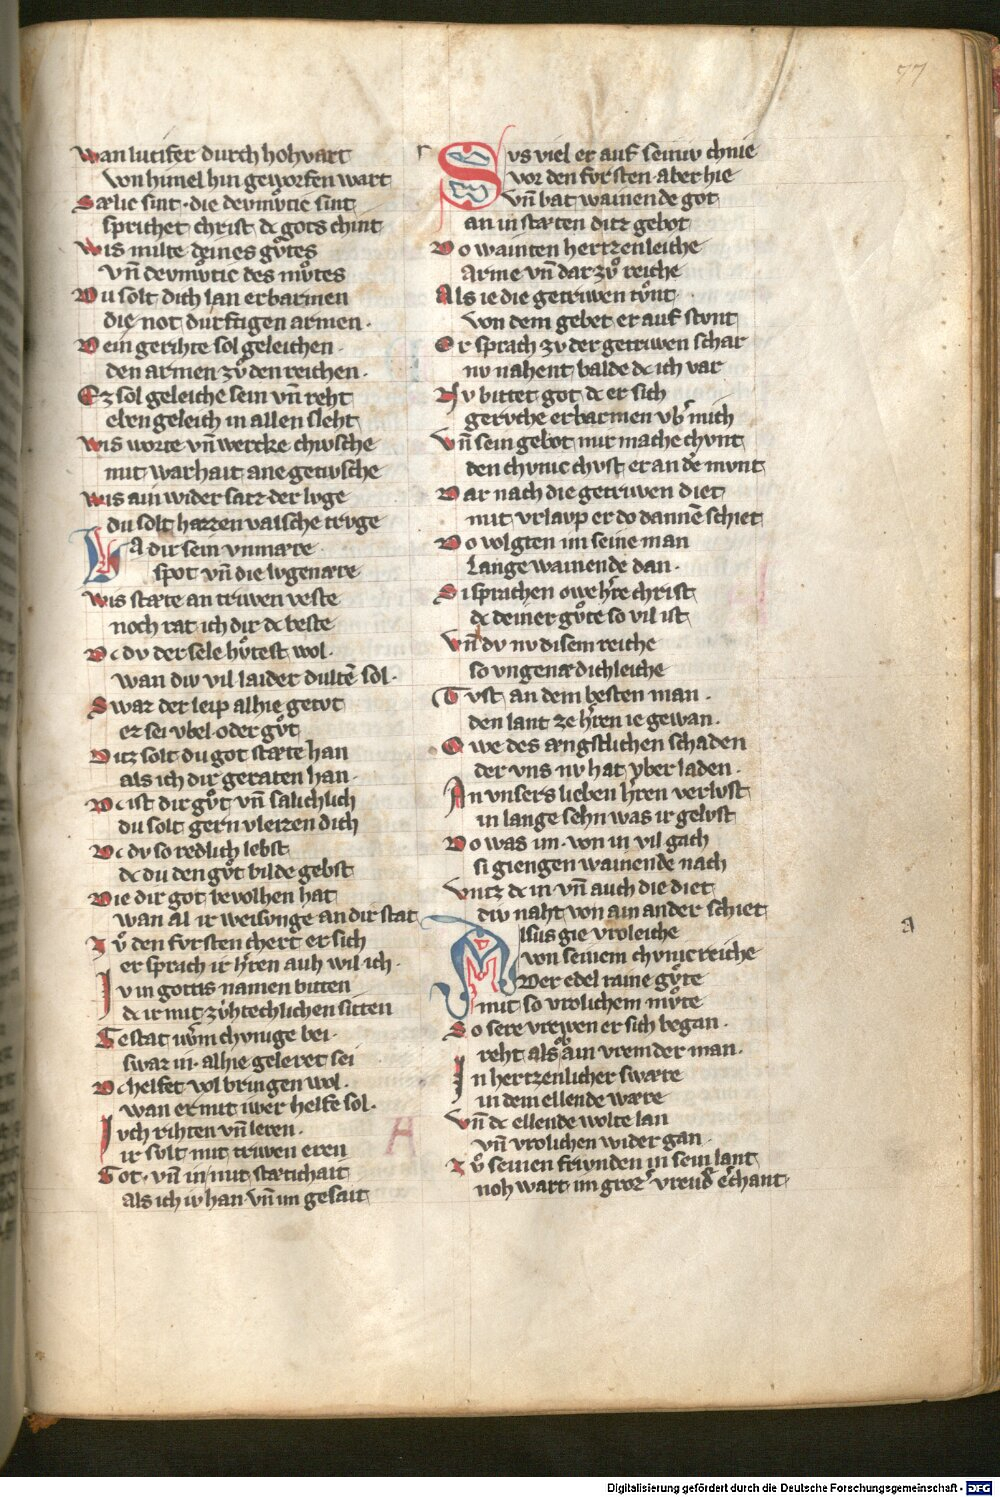 77
Wan lucifer durch hohvart
von himel hin geworfen wart
Sælic sint · die devmvͤtic sint
sprichet christ dc gots chint
Wis milte deines gvͦtes
vn̄ devmvͤtic des mvͦtes
Dv solt dich lan erbarmen
die not dvrftigen armen ·
Dein gerihte sol geleichen ·
den armen zvͦ den reichen ·
Ez sol geleiche sein vn̄ reht
eben geleich in allen sleht
Wis worte vn̄ wercke chivsche
mit warhait ane getivsche
Wis ain wider satz der lvge
du solt hazzen valsche trvge
La dir sein vnmære
spot vn̄ die lvgenære
Wis stæte an triwen veste
noch rat ich dir dc beste
Dc dv der sele hvͤtest wol ·
wan div vil laider dultē sol ·
Swaz der leip alhie getvt
ez sei vbel oder gvͦt
Ditz solt du got stæte han
als ich dir geraten han ·
Dc ist dir gvͦt vn̄ sælichlich
du solt gern vleizen dich
Dc dv so redlich lebst
dc du den gvͦt bilde gebst
Die dir got bevolhen hat
wan al ir weisvnge an dir stat
Zvͦ den fvrsten chert er sich
er sprach ir h̄ren auh wil ich ·
Iv in gottis namen bitten
dc ir mit zvͤhtechlichen sitten
Gestat iwͦm chvnige bei ·
swaz in · alhie geleret sei
Dc helfet vol bringen wol ·
wan er mit iwer helfe sol ·
Ivch rihten vn̄ leren ·
ir svlt mit triwen eren
Got · vn̄ in mit stætichait
als ich iv han vn̄ im gesait
A
r
Svs viel er auf seiniv chnie
vor den fvrsten aber hie
vn̄ bat wainende got
an in stæten ditz gebot
Do wainten hertzenleiche
Arme vn̄ dar zvͦ reiche
Als ie die getriwen tvͦnt ·
von dem gebet er auf stvnt
Er sprach zv der getriwen schar
nv nahent balde dc ich var
Nv bittet got dc er sich
gervche erbarmen vb̄ mich
Vn̄ sein gebot mir mache chvnt
den chvnic chvst er an dē mvnt
Dar nach die getriwen diet
mit vrlavp er do dannē schiet
Do volgten im seine man
Lange wainende dan ·
Si sprachen owe h̄re christ
dc deiner gvͤte so vil ist
Vn̄ dv nv disem reiche
so vngenædichleiche
Tvst an dem besten man ·
den lant ze h̄ren ie gewan ·
Owe des ængstlichen schaden
der vns nv hat vber laden ·
An vnsers lieben h̄ren verlvst
in lange sehn was ir gelvst
Do was im · von in vil gach
si giengen wainende nach
Vntz dc in vn̄ auch die diet
div naht von ain ander schiet
Alsus gie vroleiche
von seinem chvnicreiche
Der edel raine gvͤte
mit so vrolichem mvͤte
So sere vrewen er sich began ·
reht als ob ain vremder man ·
In hertzenlicher swære
in dem ellende wære
Vn̄ dc ellende wolte lan
vn̄ vrolichen wider gan ·
Zvͦ seinen frivnden in sein lant
noh wart im groz͛ vreud͛ erchant
a
Digitalisierung gefördert durch die Deutsche Forschungsgemeinschaft - DFG